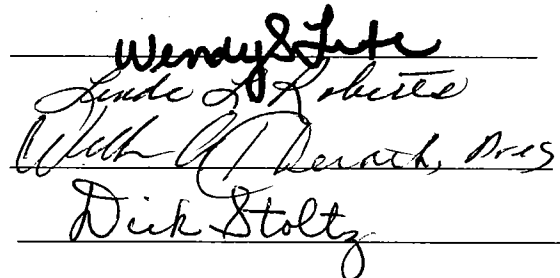 Wendy S Lute
Linda L Roberts
A Pres
Dick Stoltz